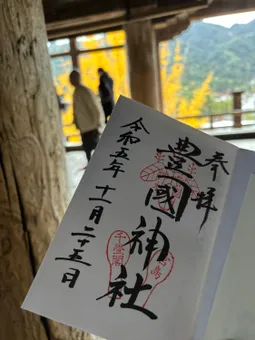 奉拝
豊國神社
千畳閣
令和五年十一月二十五日